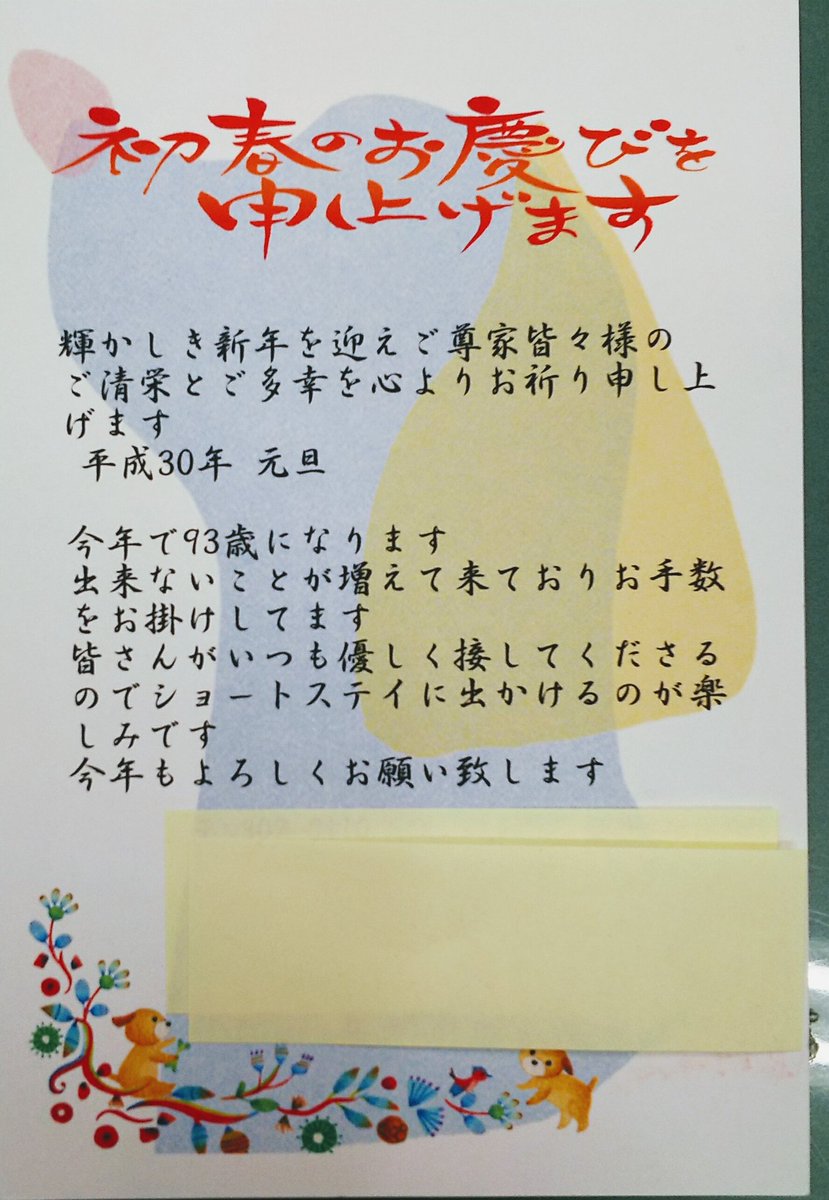 初春のお慶びを
申し上げます
輝かしき新年を迎えご尊家皆々様の
ご清栄とご多幸を心よりお祈り申し上
げます
平成30年 元旦
今年で93歳になります
出来ないことが増えて来ておりお手数
をお掛けしてます
皆さんがいつも優しく接してくださる
のでショートステイに出かけるのが楽
しみです
今年もよろしくお願い致します